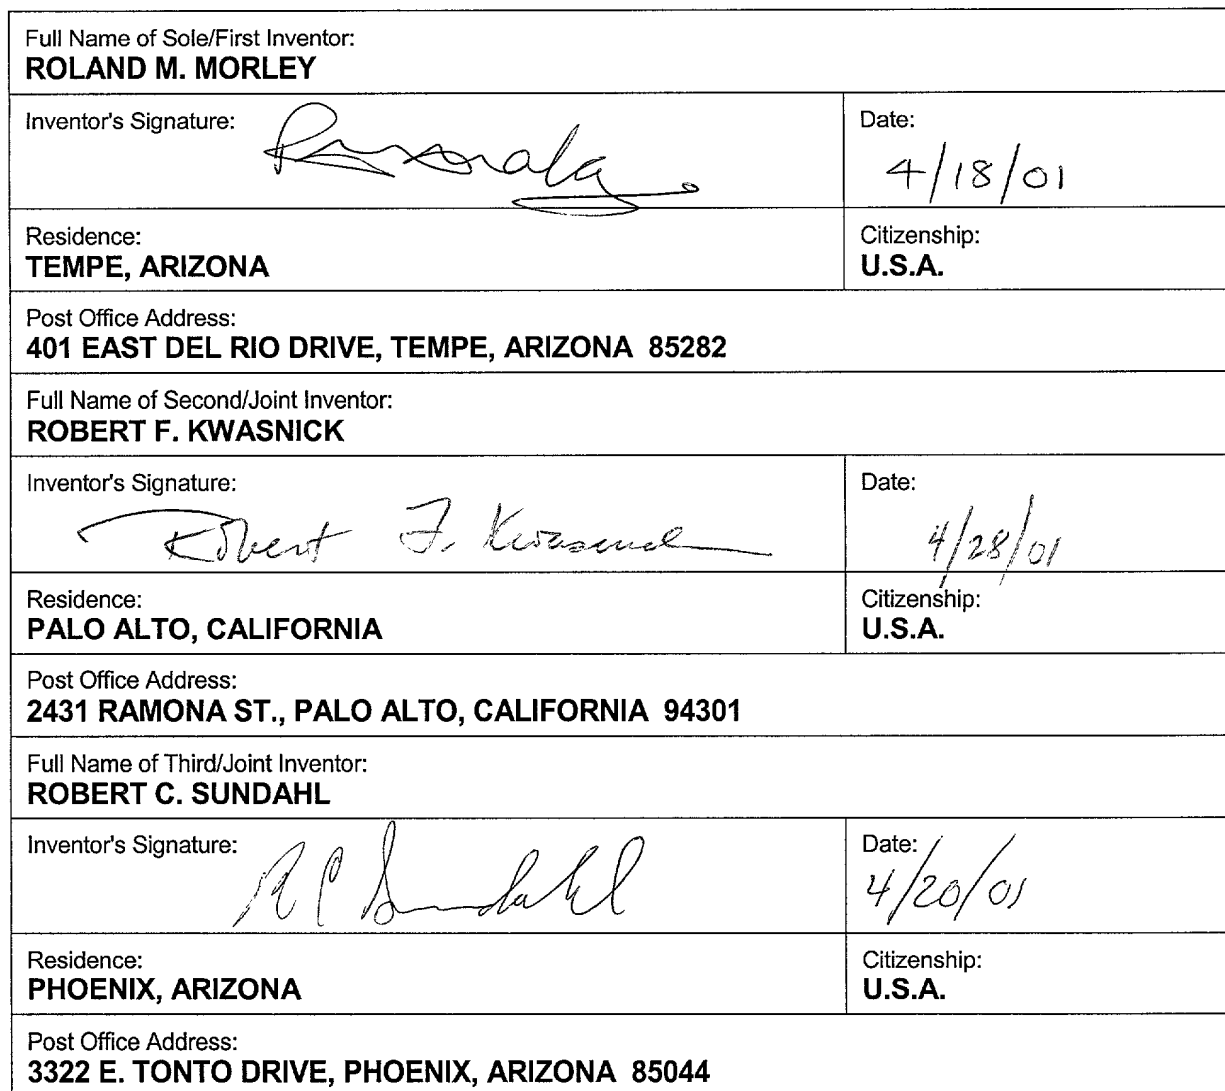 Full Name of Sole/First Inventor:
ROLAND M. MORLEY
Inventor's Signature:
Date:
4/18/01
Residence:
TEMPE, ARIZONA
Citizenship:
U.S.A.
Post Office Address:
401 EAST DEL RIO DRIVE, TEMPE, ARIZONA 85282
Full Name of Second/Joint Inventor:
ROBERT F. KWASNICK
Inventor's Signature:
Robert F. Kwasnick
Date:
4/28/01
Residence:
PALO ALTO, CALIFORNIA
Citizenship:
U.S.A.
Post Office Address:
2431 RAMONA ST., PALO ALTO, CALIFORNIA 94301
Full Name of Third/Joint Inventor:
ROBERT C. SUNDAHL
Inventor's Signature:
R C Sundahl
Date:
4/20/01
Residence:
PHOENIX, ARIZONA
Citizenship:
U.S.A.
Post Office Address:
3322 E. TONTO DRIVE, PHOENIX, ARIZONA 85044